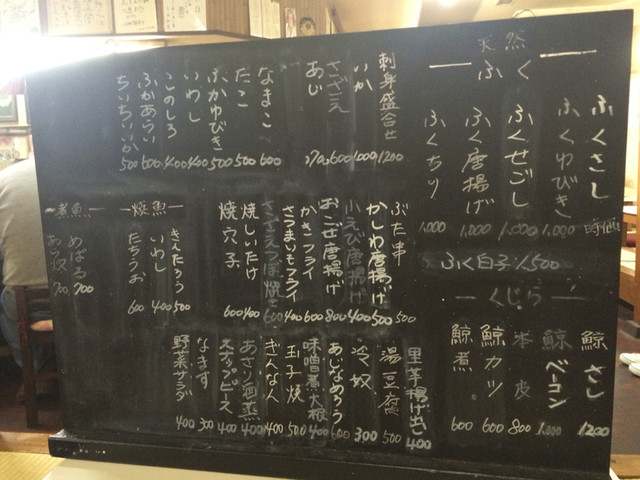 天然
ふく
ふくさし 時価
ふくゆびき 1,000
ふくせごし 1,000
ふく唐揚げ 1,000
ふくちり 1,000
ふく白子 1,500
くじら
鯨さし 1200
鯨ベーコン 1,000
本皮 800
鯨カツ 600
鯨煮 600
刺身盛合せ 1200
いか 1000
さざえ 600
あじ
なまこ 600
たこ 500
ふかゆびき 500
いわし 400
このしろ 400
ふかあらい 600
ちいちいいか 500
ぶた串 500
かしわ唐揚げ 500
小えび唐揚げ 400
おこぜ唐揚げ 800
かきフライ 600
さつまいもフライ 400
さざえつぼ焼き 600
焼しいたけ 400
焼穴子 600
焼魚
きんたろう 500
いわし 400
たちうお 600
煮魚
めばる 700
あら炊 700
里芋揚げ出し 400
湯豆腐 500
冷奴 300
あじなめろう 600
味噌煮大根 400
玉子焼 500
ぎんなん 400
あさり酒蒸 400
スナップピース 400
なます 300
野菜サラダ 400